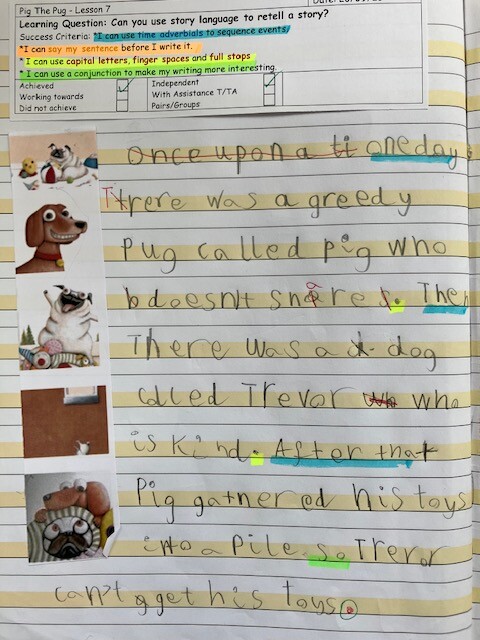 Pig The Pug - Lesson 7
Learning Question: Can you use story language to retell a story?
Success Criteria: *I can use time adverbials to sequence events/
*I can say my sentence before I write it.
* I can use capital letters, finger spaces and full stops
* I can use a conjunction to make my writing more interesting.
Achieved ✓ Independent ✓
Working towards With Assistance T/TA
Did not achieve Pairs/Groups
once upon a ti one day
There was a greedy
Pug called pig who
doesn't share. Then
There was a dog
called Trevor who
is kind. After that
Pig gathered his toys
into a pile so Trevor
can't get his toys.